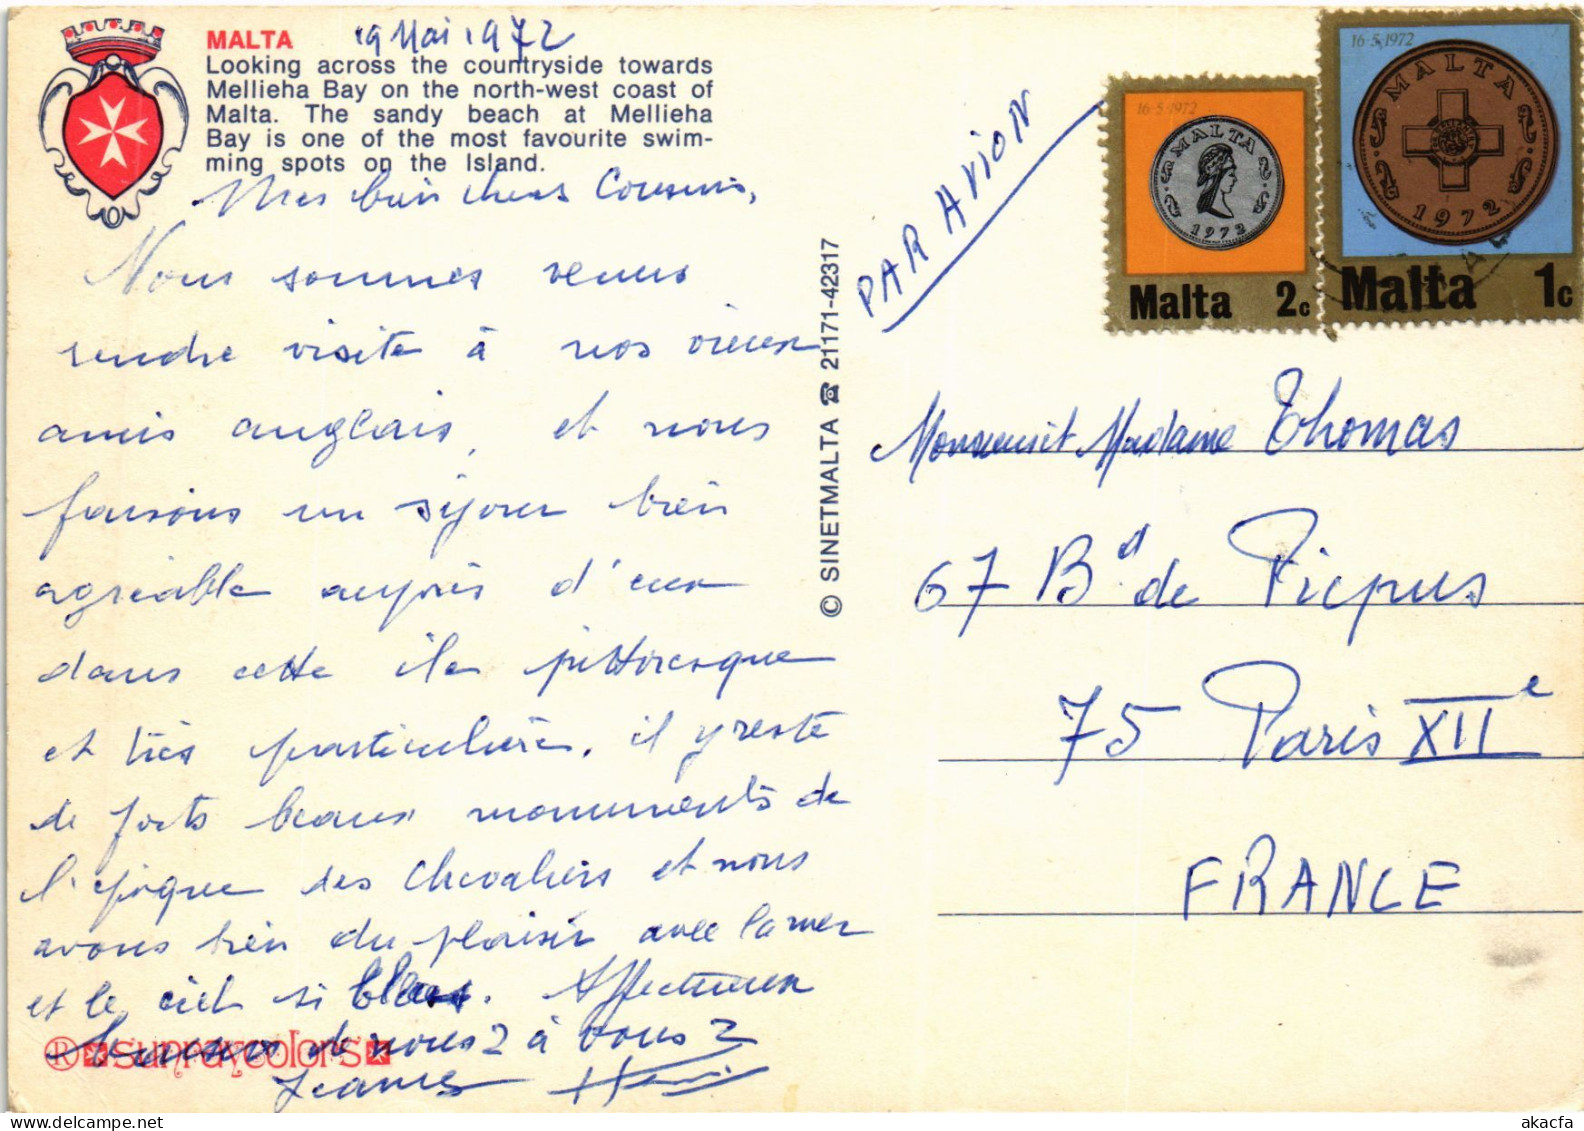 MALTA 19 Mai 1972
Looking across the countryside towards
Mellieha Bay on the north-west coast of
Malta. The sandy beach at Mellieha
Bay is one of the most favourite swim-
ming spots on the Island.
Mes bien chers Cousins,
Nous sommes venus
rendre visite à nos vieux
amis anglais, et nous
faisons un séjour bien
agréable auprès d'eux
dans cette île pittoresque
et très particulière. il y reste
de forts beaux monuments de
l'époque des Chevaliers et nous
avons bien du plaisir avec la mer
et le ciel si bleus. Affectueux
baisers de nous 2 à vous 2
Jeanne Henri
® sunraycolors
© SINETMALTA ☎ 21171-42317
PAR AVION
16-5-1972
MALTA
1972
Malta 2c
16-5-1972
MALTA
1972
Malta 1c
Monsieur et Madame Thomas
67 Bd de Picpus
75 Paris XIIe
FRANCE
akacfa